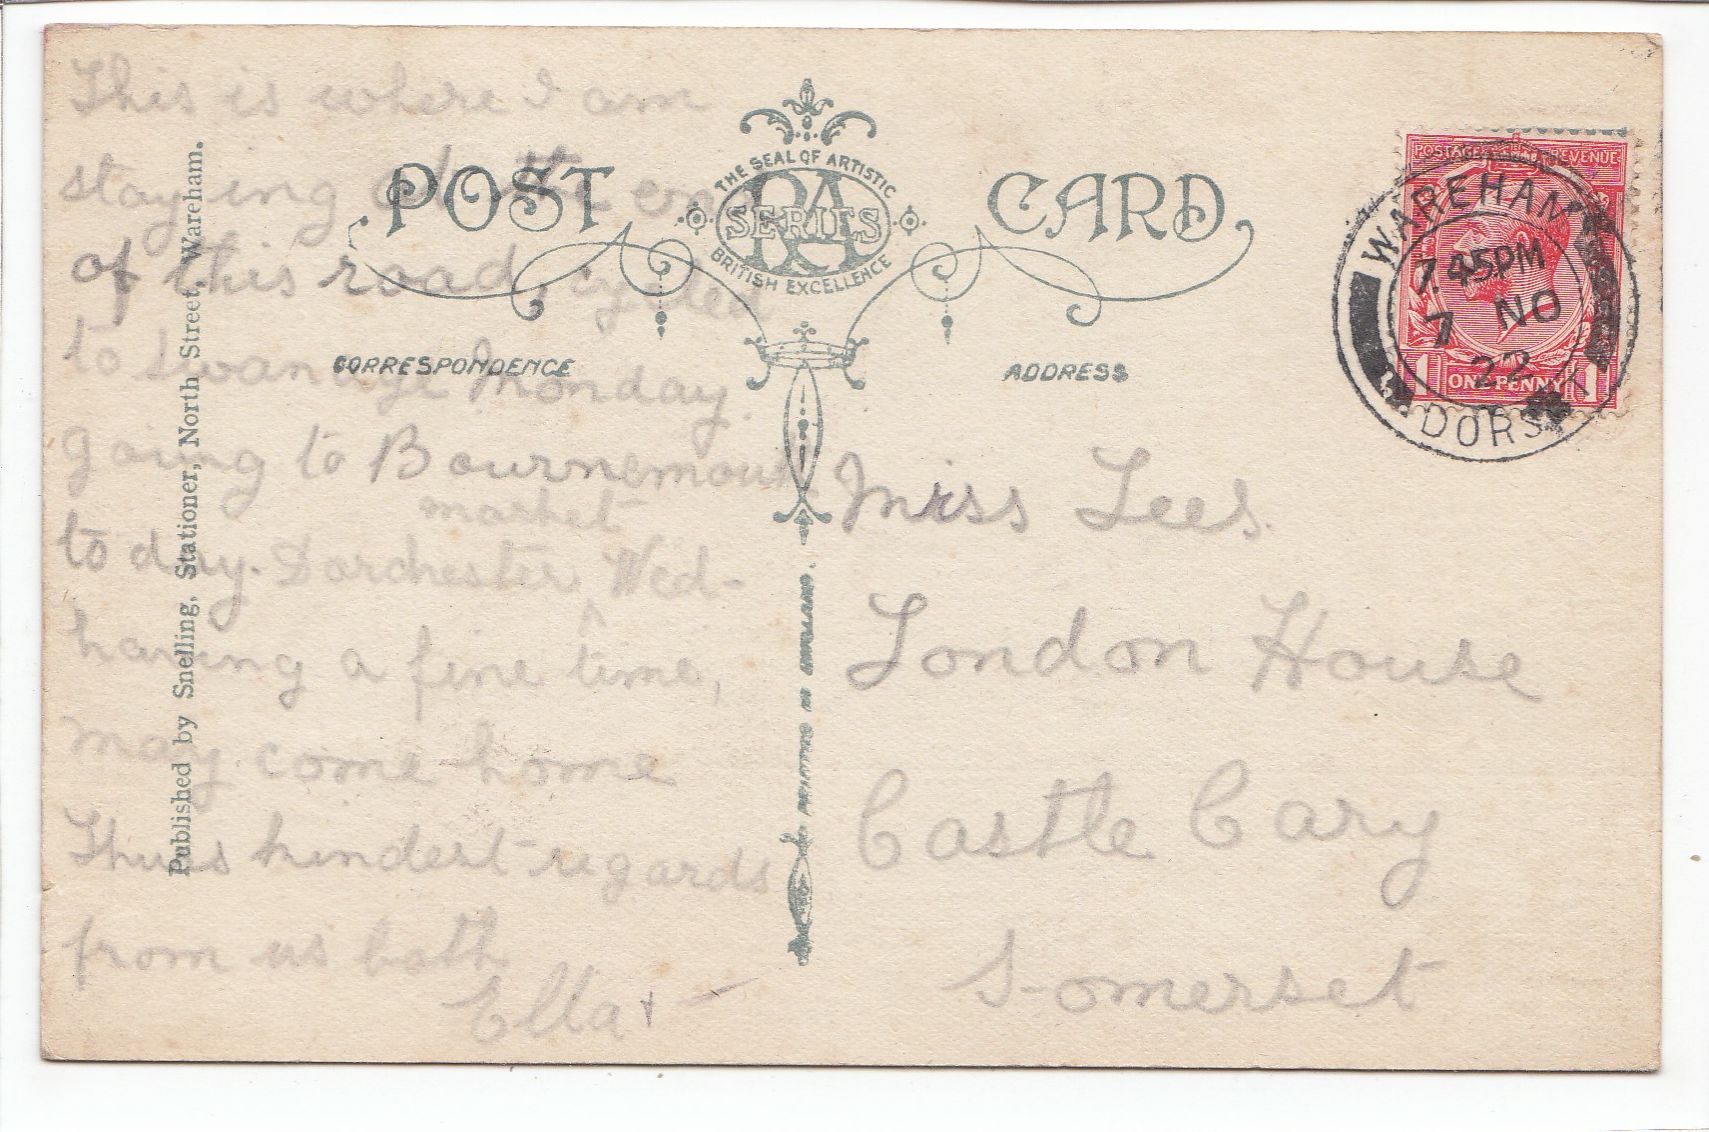 This is where I am
staying at the end
of this road, cycled
to Swanage Monday.
going to Bournemouth
market
to day. Dorchester ^ Wed-
having a fine time,
may come home
Thurs kindest regards
from us both
Ella
Published by Snelling, Stationer, North Street, Wareham.
POST CARD
THE SEAL OF ARTISTIC
RA
SERIES
BRITISH EXCELLENCE
CORRESPONDENCE
ADDRESS
POSTAGE REVENUE
ONE PENNY
1 1
WAREHAM
7.45PM
7 NO
22
DORSET
Miss Lees.
London House
Castle Cary
Somerset